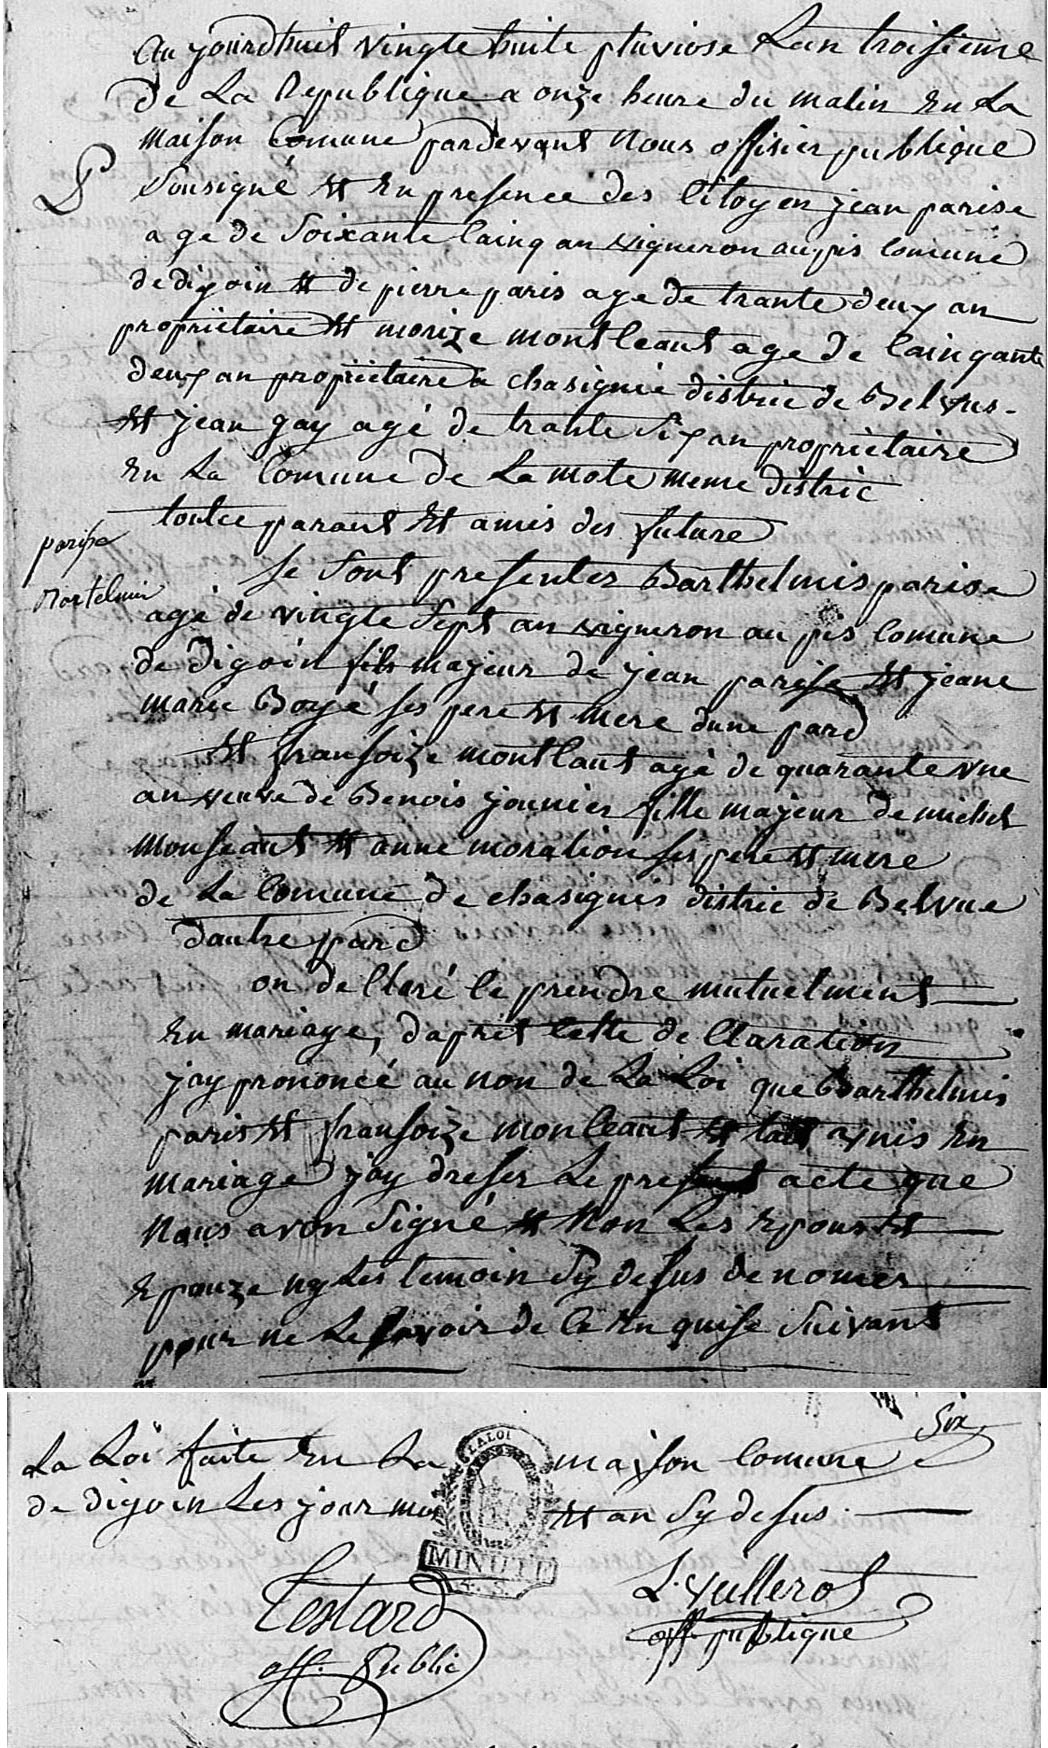 Au jourdhuit vingte huite pluviose Lan troisieme
de La Republique a onze heure du matin En La
maison Comune pardevant Nous offisier publique
Sousigné Et En presence des Citoyen jean parise
age de Soixante Cainq an vigneron au pis Comune
de digoin Et de pierre paris age de trante deux an
propriëtaire Et morize montleaut age de Cainqante
deux an propriëtaire a chasignië distric de Belvus.
Et jean gay agé de trante Six an propriëtaire
En La Comune de La mote meme distric
toutce parant Et amis des future
parise
Se Sont presentez Barthelmis parise
Bartelmis
agé de vingte Sept an vigneron au pis Comune
de digoin fils majeur de jean parise Et jeane
marie Boyé ses pere Et mere dune pard
Et fransoize montlaut agé de quarante vne
an veuve de Benois jounier fille majeur de michel
Monseaut Et anne moration ses pere Et mere
de La Comune de chasignis distric de Belvue
dautre pard
on de Claré Ce prendre mutuelment
En mariage, dapret Cette de Claration
jay prononcé au non de La Loi que Barthelmis
paris Et fransoize monleaut vnis En
mariage jay dreser Le present acte que
Nous avon Signé Et Non Les Epoust Et
Epouze ny Les temoin Sy desus de nomer
pour ne Le savoir de Ce En quise Suivant
Six
La Loi faite En La maison Comune
de digoin Les jour mois Et an Sy desus
LA LOI
MINUTE
Testard
L. vullerot
off. Public
off. publique